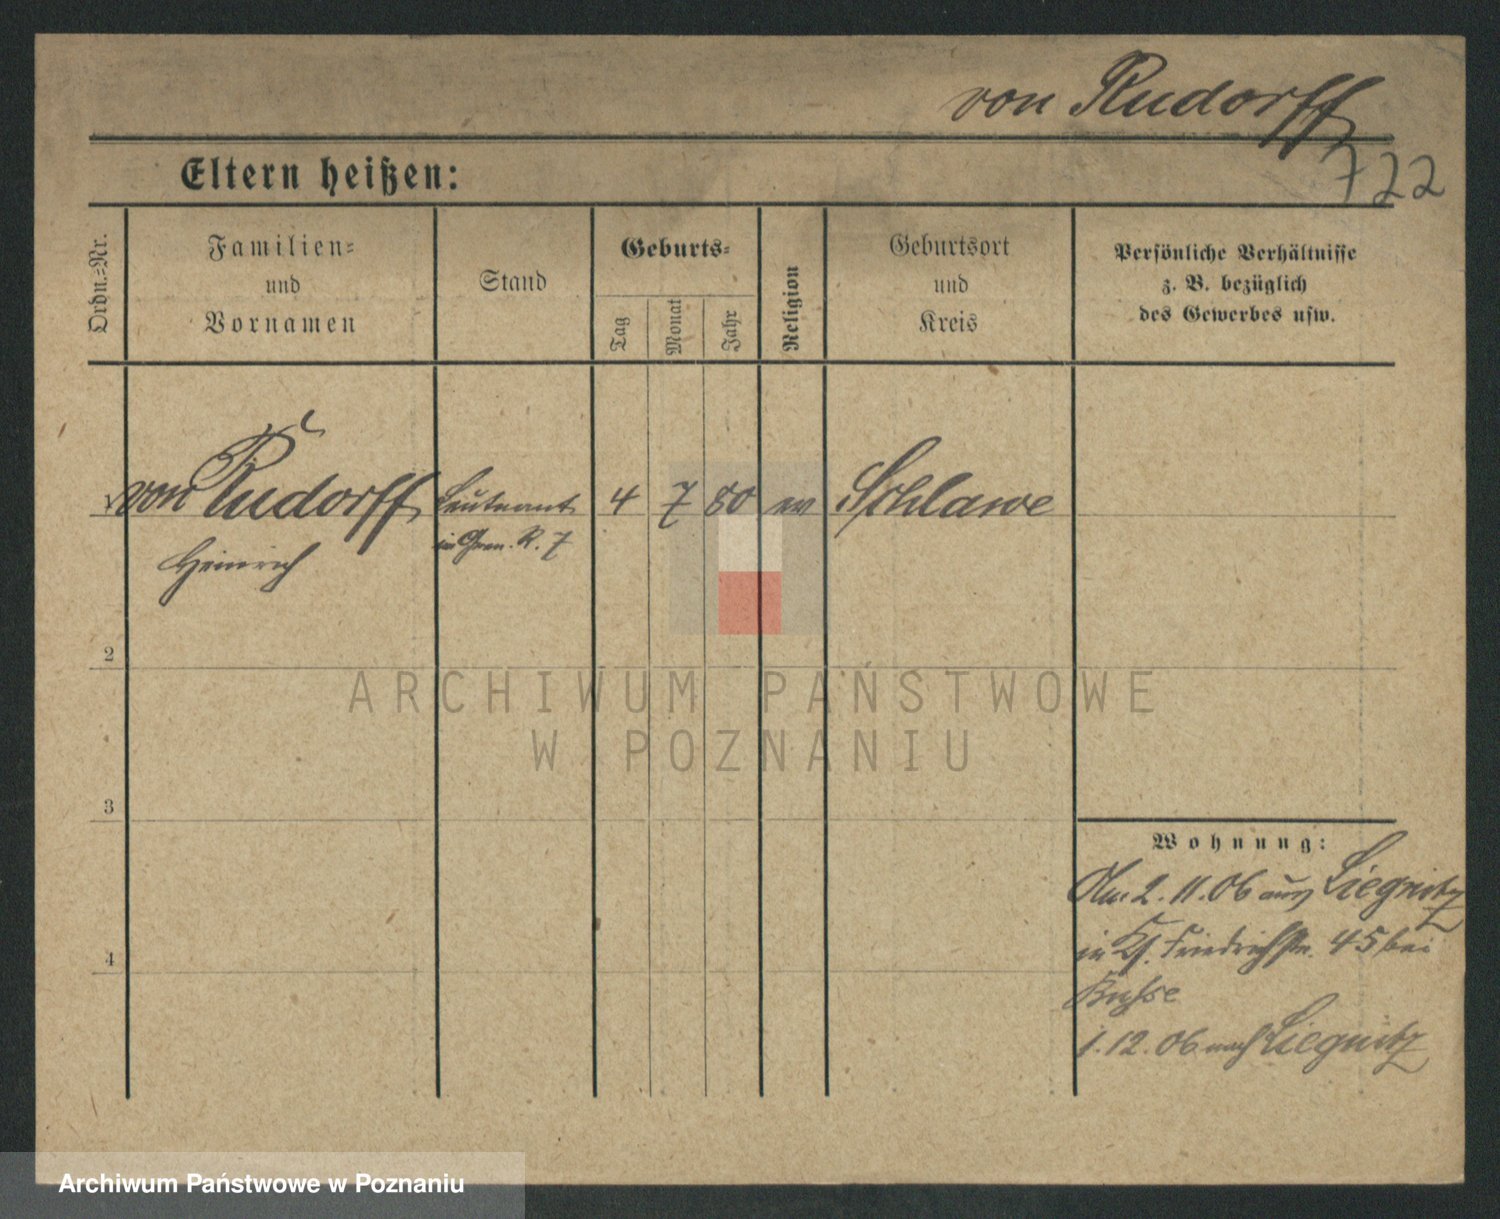 von Rudorff
722
Eltern heißen:
Ordn.=Nr.
Familien=
und
Vornamen
Stand
Geburts=
Tag
Monat
Jahr
Religion
Geburtsort
und
Kreis
Persönliche Verhältnisse
z. B. bezüglich
des Gewerbes usw.
von Rudorff Leutnant 4 7 80 ev Schlawe
Heinrich in Gren. R. 7
2
3
4
Wohnung:
Am 2.11.06 aus Liegnitz
in Friedrichstr. 45 bei
1.12.06 nach Liegnitz
ARCHIWUM PAŃSTWOWE
W POZNANIU
Archiwum Państwowe w Poznaniu